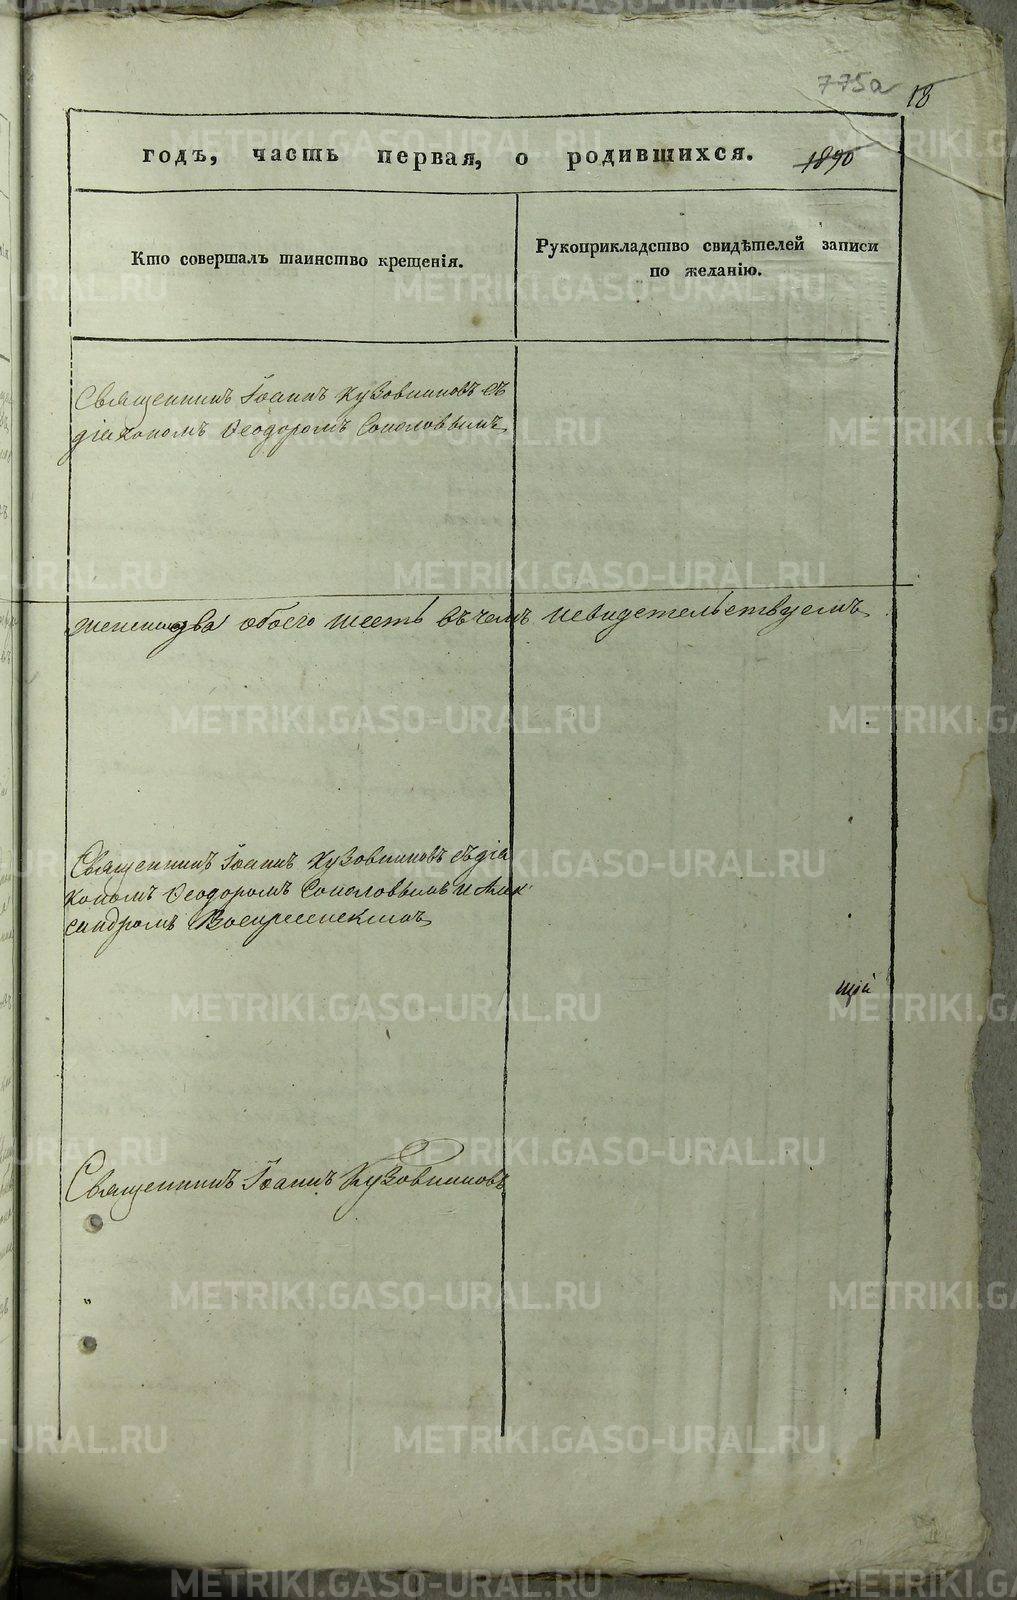 775а
18
годъ, часть первая, о родившихся. 1890
Кто совершалъ таинство крещенія.
Рукоприкладство свидѣтелей записи
по желанію.
Священникъ Іоаннъ Кузовниковъ съ
діакономъ Ѳеодоромъ Соколовымъ
женска два обоего шесть въ чемъ и свидетельствуемъ
Священникъ Іоаннъ Кузовниковъ съ діа
кономъ Ѳеодоромъ Соколовымъ и Алек
сандромъ Воскресенскимъ
щій
Священникъ Іоаннъ Кузовниковъ
METRIKI.GASO-URAL.RU